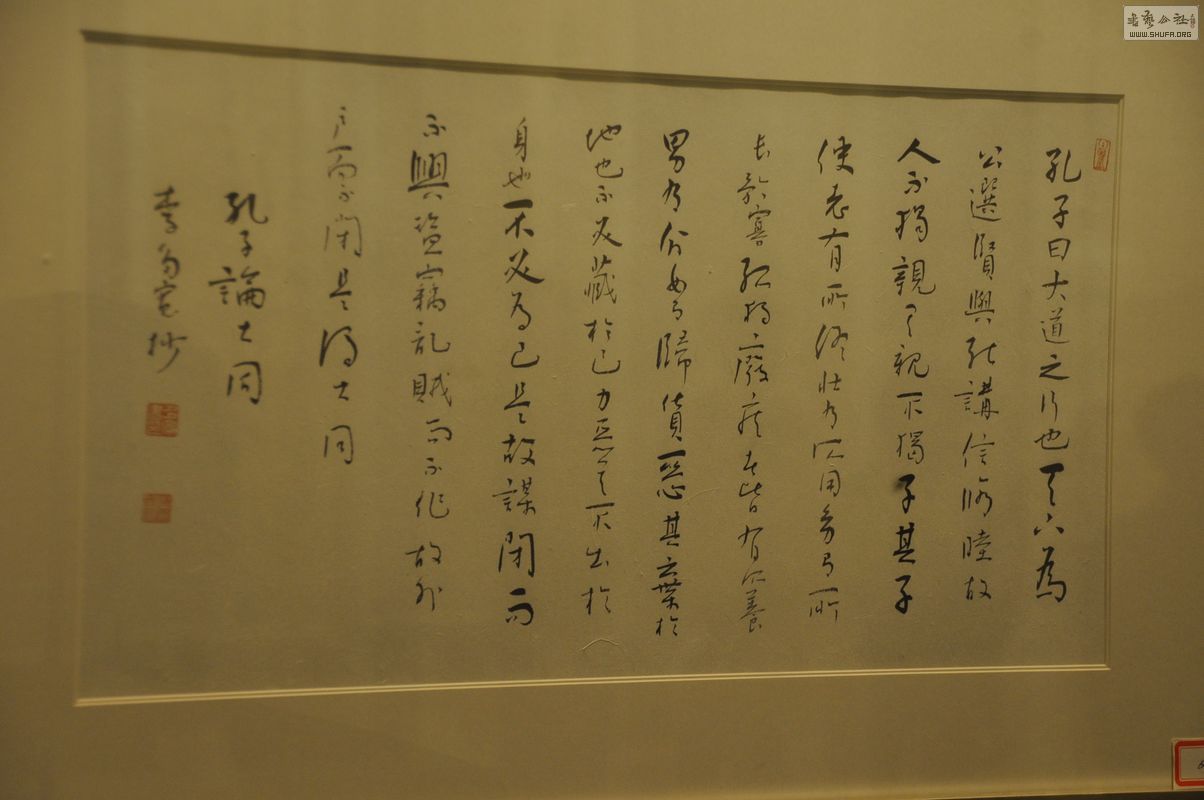 孔子曰大道之行也天下為
公選賢與能講信脩睦故
人不獨親其親不獨子其子
使老有所終壯有所用幼有所
長矜寡孤獨廢疾者皆有所養
男有分女有歸貨惡其棄於
地也不必藏於己力惡其不出於
身也不必為己是故謀閉而
不興盜竊亂賊而不作故外
戶而不閉是謂大同
孔子論大同
李 抄
WWW.SHUFA.ORG